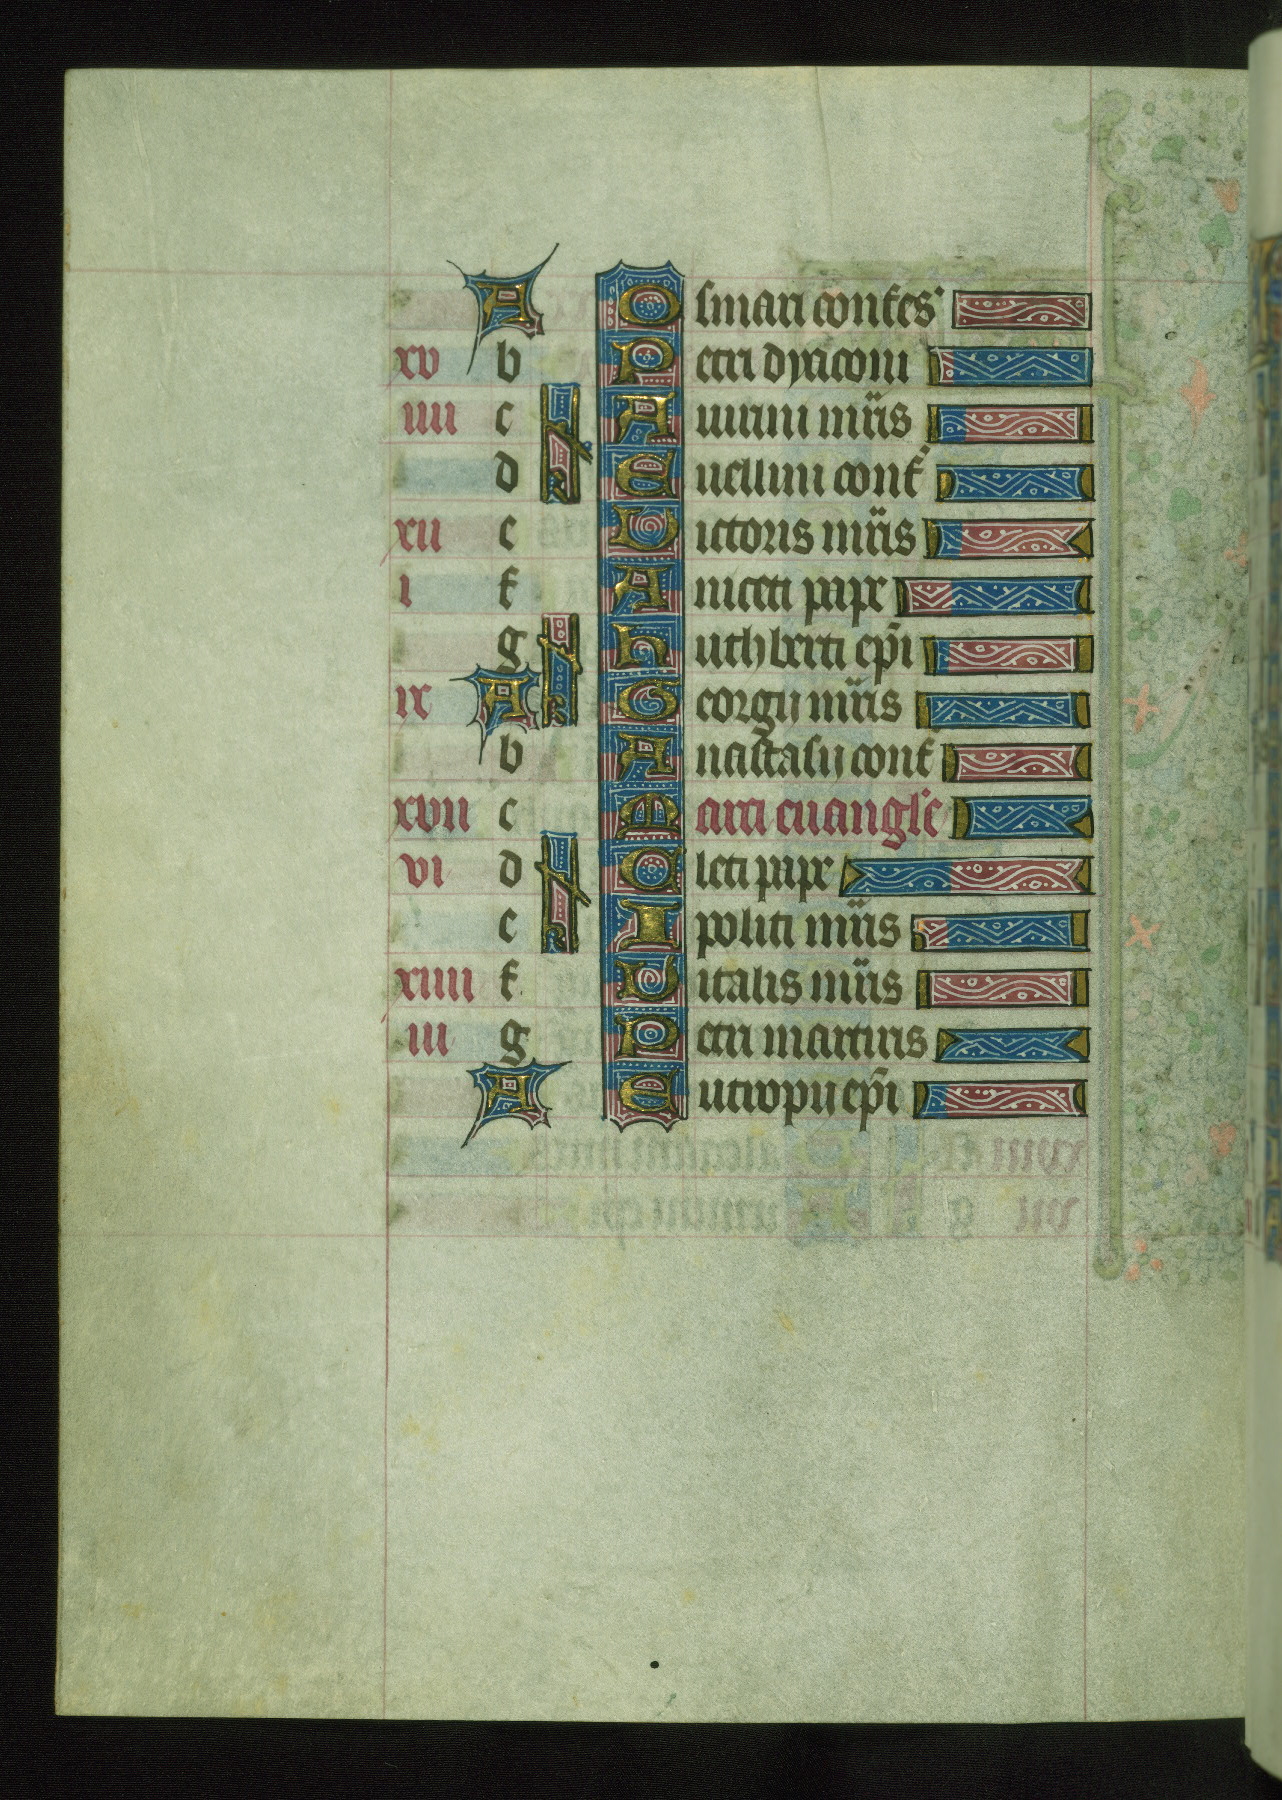 A Osmari confes'
xv b Petri dyaconi
iiii c N Auiani mris
d Euellini conf'
xii e Uictoris mris
i f Aniceti pape
g N huthberti epi
ix A Georgij mris
b Anastasij conf'
xvii c Marci euangl'e
vi d N Cleti pape
e Ipoliti mris
xiiii f Uitalis mris
iii g Petri martiris
A Eutropij epi